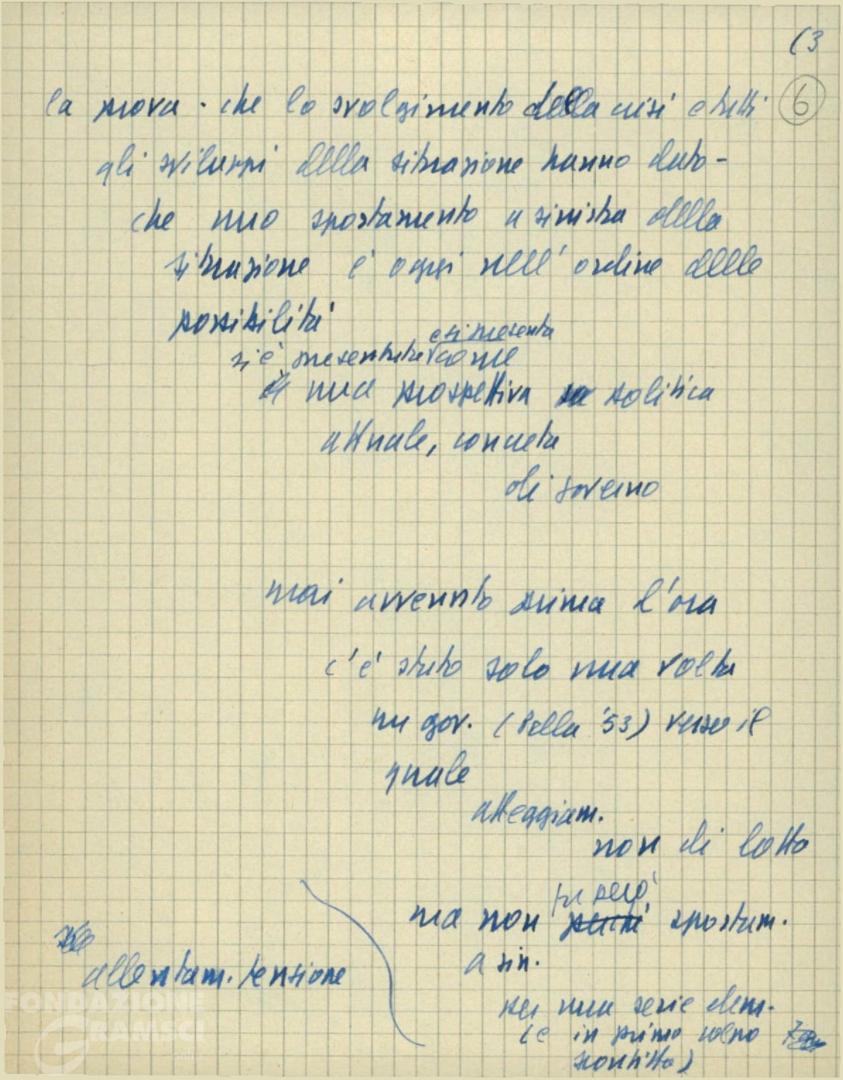 (3
6
la prova - che lo svolgimento della crisi e tutti
gli sviluppi della situazione hanno dato -
che uno spostamento a sinistra della
situazione è oggi nell'ordine delle
possibilità
e si presenta
si è presentata come
una prospettiva politica
attuale, concreta
di governo
mai avvenuto prima d'ora
c'è stato solo una volta
un gov. (Pella '53) verso il
quale
atteggiam.
non di lotta
fu però
ma non perché spostam.
a sin.
allentam. tensione
per una serie elem.
(e in primo
sconfitta)
FONDAZIONE
GRAMSCI